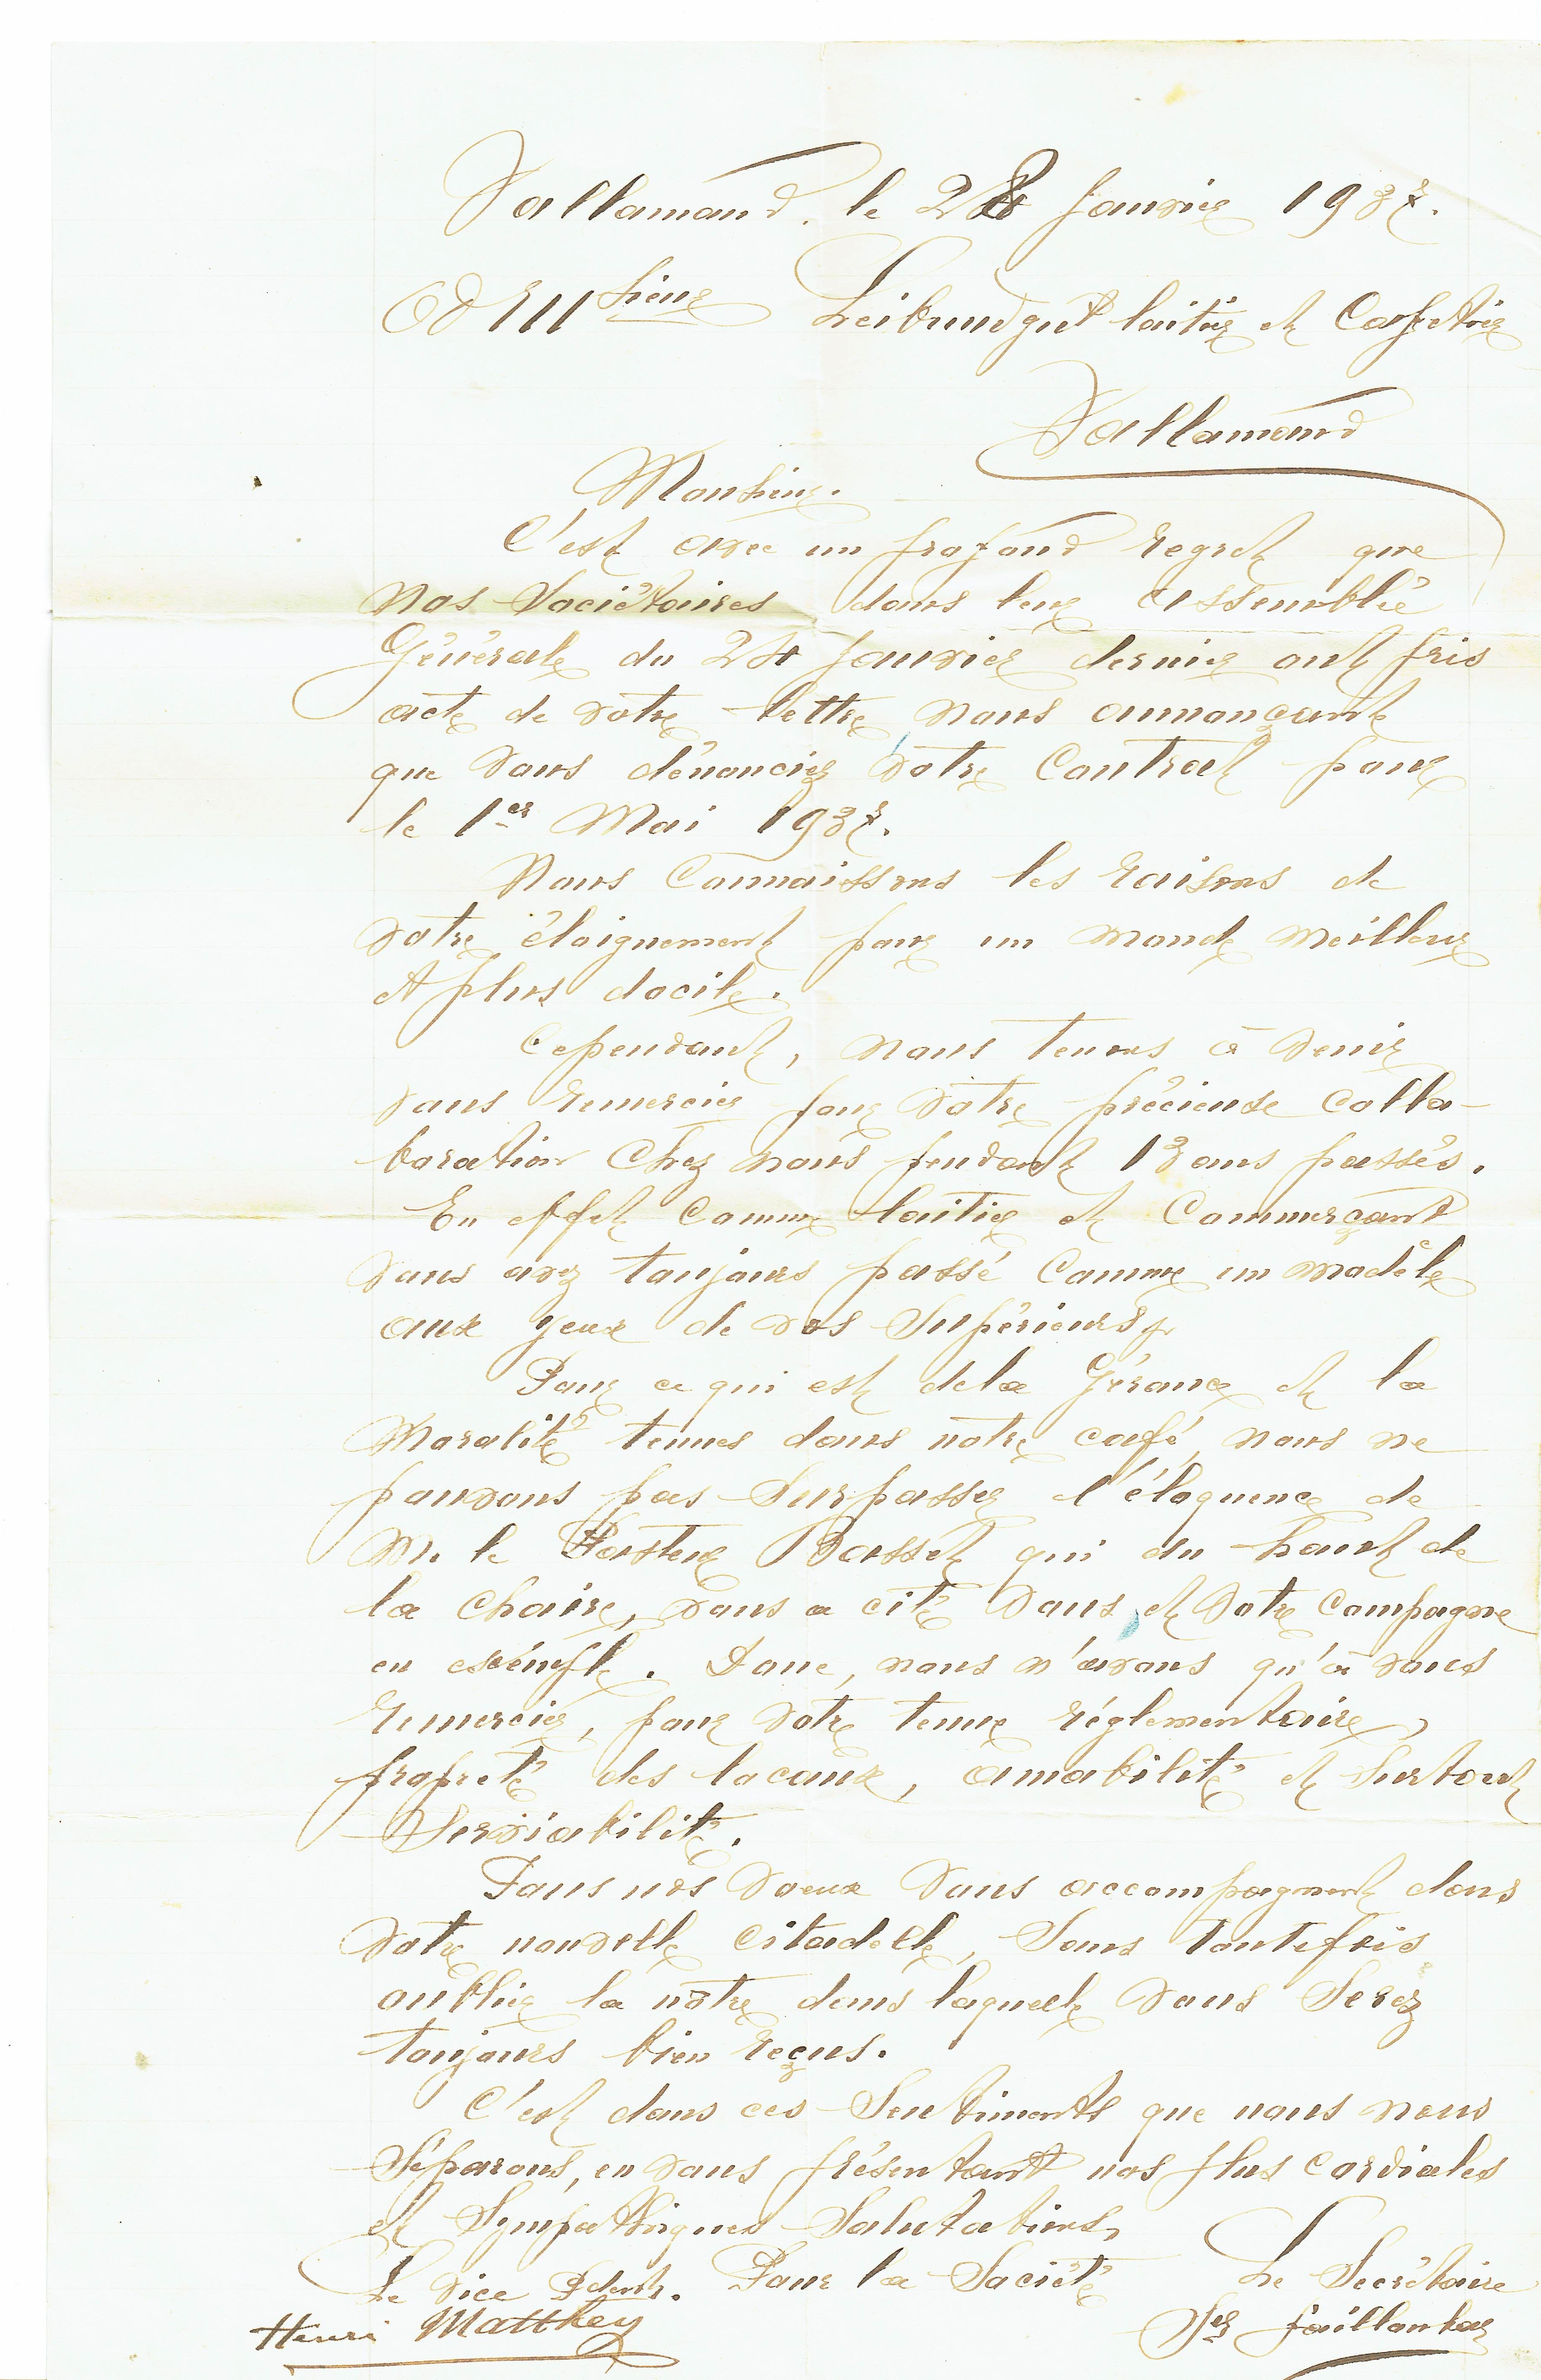 Vallamand, le 28 Janvier 1937.
Leibundgut laitier et Cafetier
Vallamand
Monsieur.
C'est avec un profond regret que
nos Sociétaires dans leur assemblée
Générale du 24 Janvier dernier ont pris
acte de votre lettre nous annonçant
que vous dénonciez votre Contrat pour
le 1er Mai 1937.
Nous Connaissons les raisons de
votre éloignement pour un monde meilleur
et plus docile.
Cependant, nous tenons à venir
vous remercier pour votre précieuse Colla-
boration Chez nous pendant 13 ans passés.
En effet Comme laitier et Commerçant
vous avez toujours passé Comme un modèle
aux yeux de vos Supérieurs,
Pour ce qui est de la Gérance et la
Moralité tenues dans notre café, nous ne
pouvons pas Surpasser l'éloquence de
M. le Pasteur Basset qui du haut de
la Chaire, vous a cité vous et votre Compagne
en exemple. Donc, nous n'avons qu'à vous
remercier, pour votre tenue réglementaire,
propreté des locaux, amabilité et Surtout
Serviabilité.
Tous nos voeux vous accompagnent dans
votre nouvelle Citadelle, Sans toutefois
oublier la nôtre dans laquelle vous Serez
toujours bien reçus.
C'est dans ces Sentiments que nous nous
Séparons, en vous présentant nos plus cordiales
et Sympathiques Salutations,
Le vice Pdent. Pour la Société Le Secrétaire
Henri Matthey